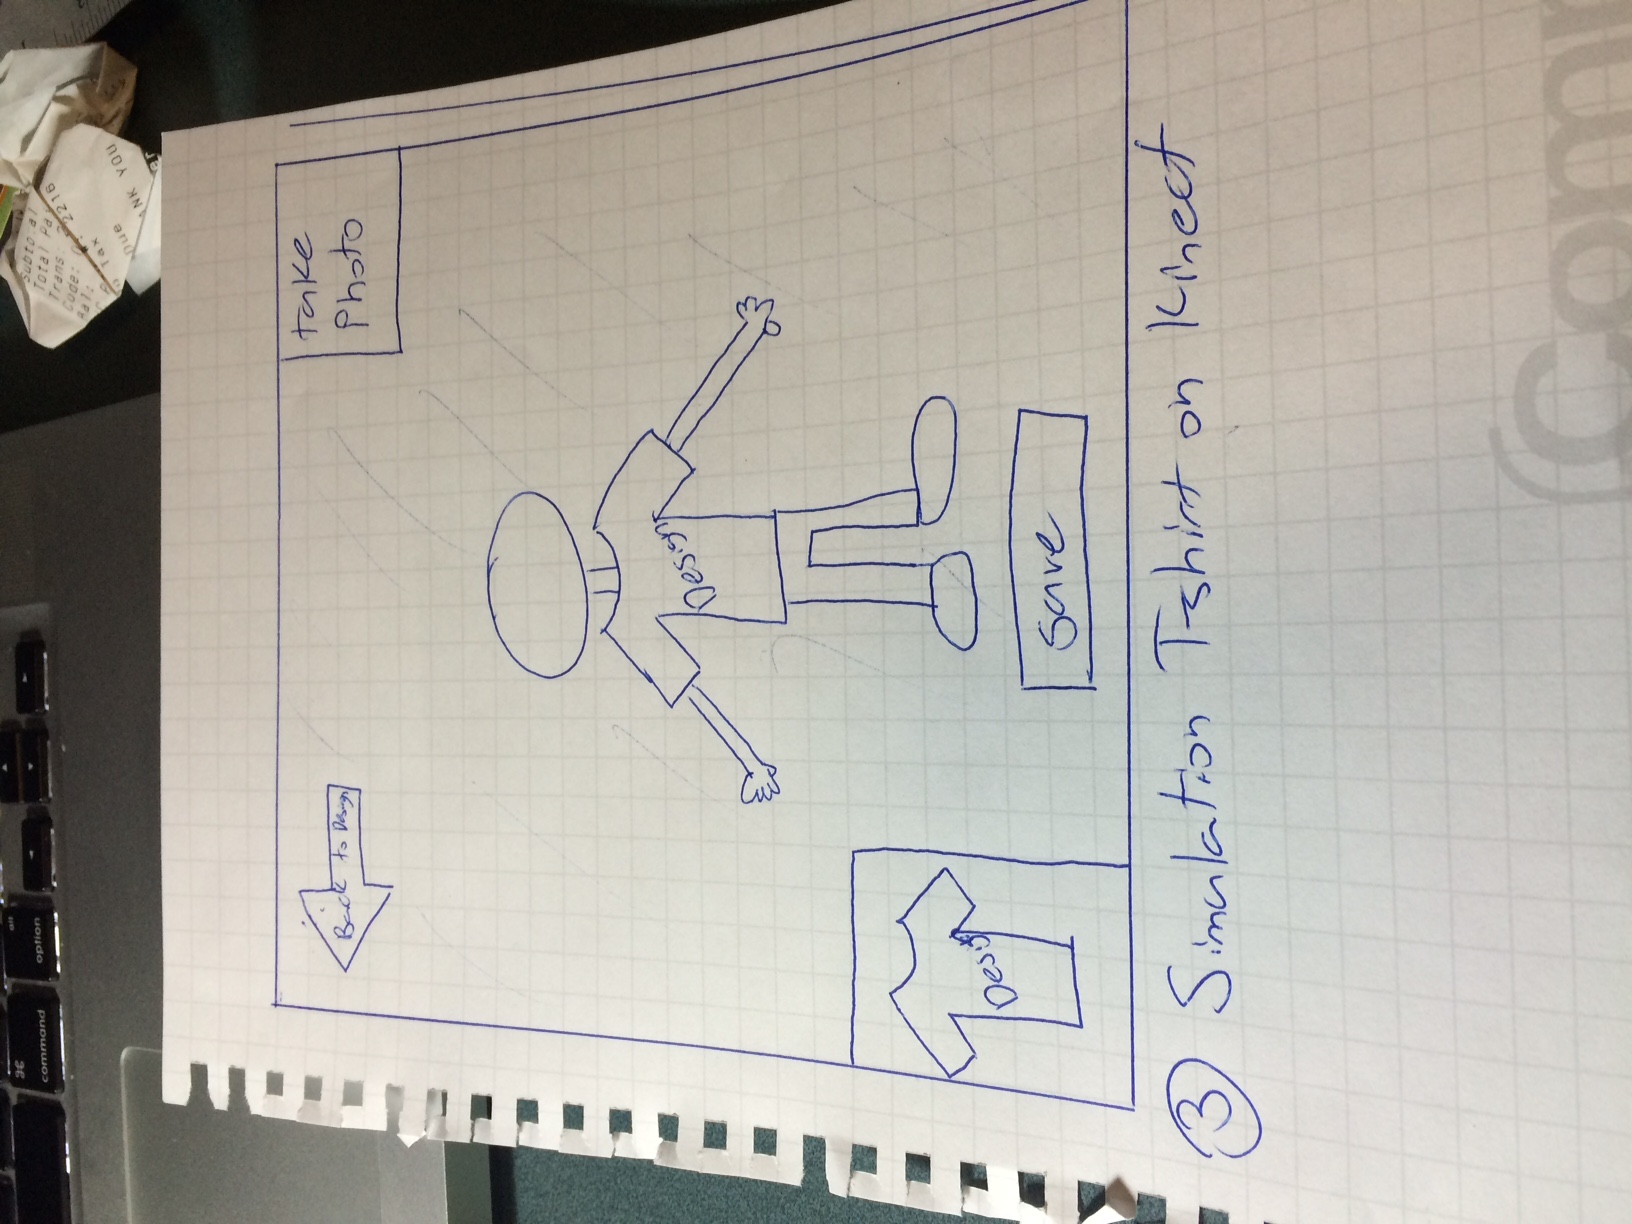 command
alt
option
Subtotal
Total Pa
Trans:
Code:
2216
Tax
Due
ANK YOU
Back to Design
take
Photo
Design
Design
Save
3 Simulation T-shirt on Kinect
Com